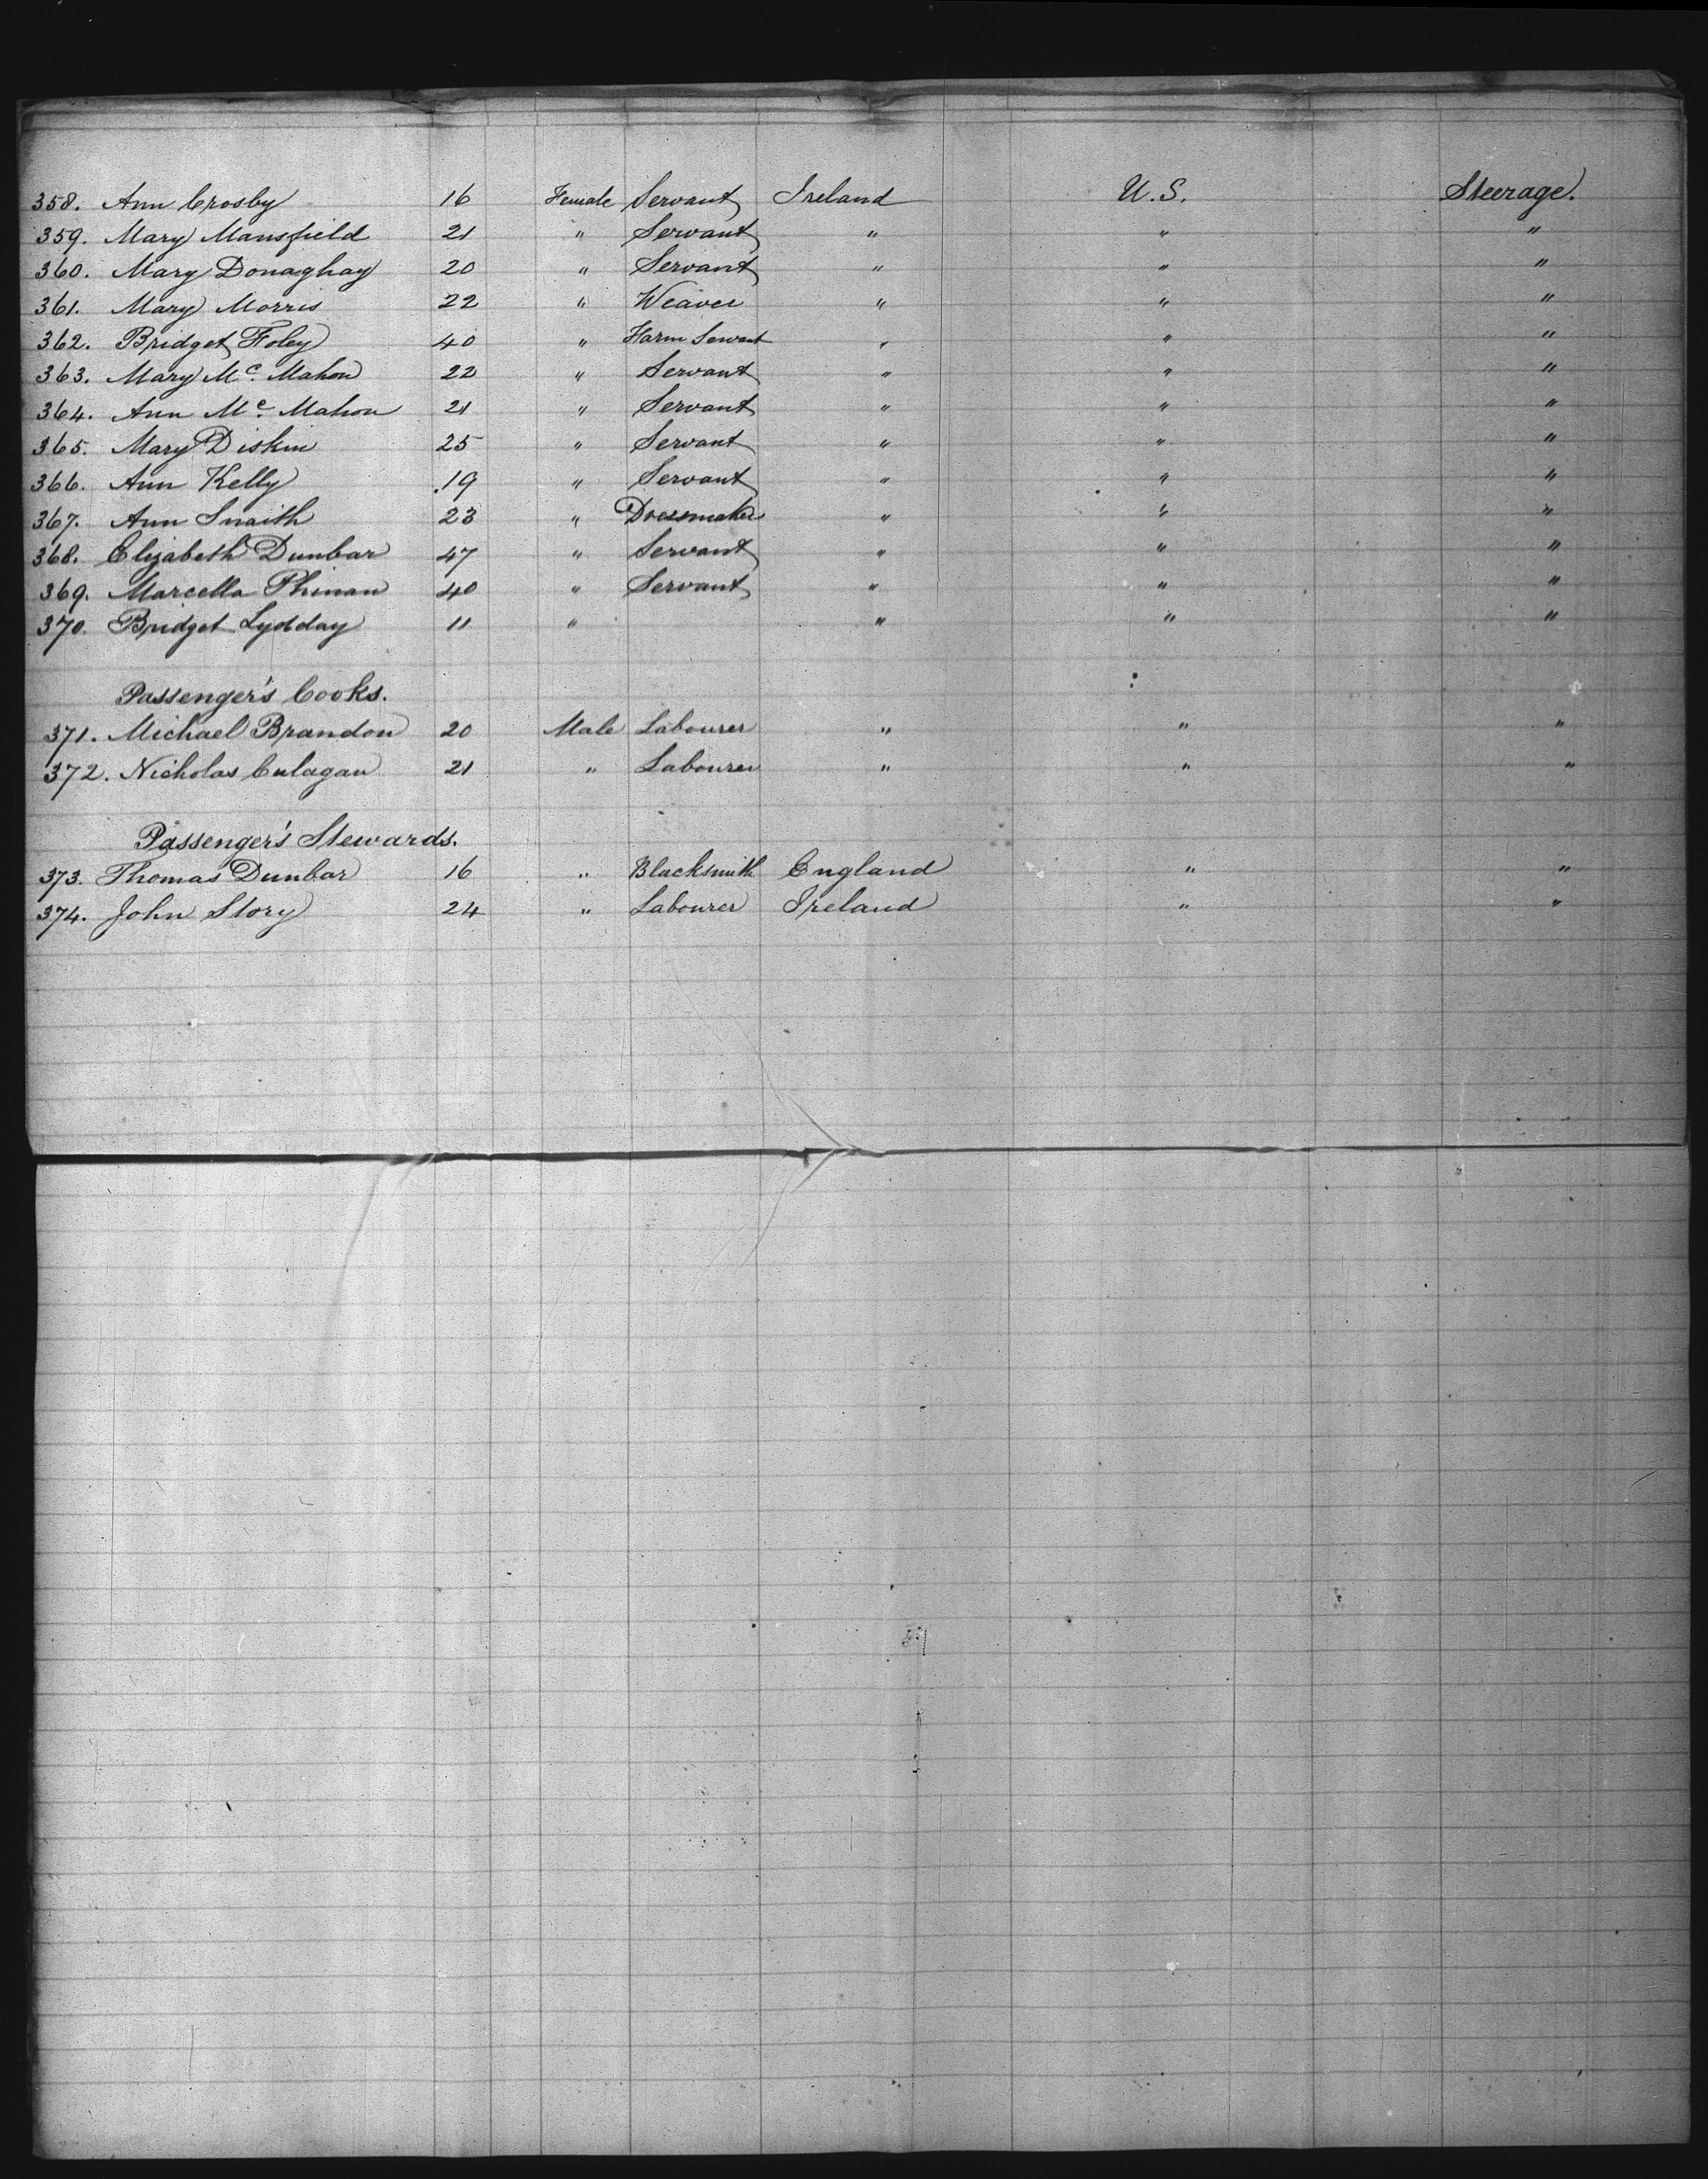 358. Ann Crosby 16 Female Servant Ireland U.S. Steerage.
359. Mary Mansfield 21 " Servant " " "
360. Mary Donaghay 20 " Servant " " "
361. Mary Morris 22 " Weaver " " "
362. Bridget Foley 40 " Farm Servant " " "
363. Mary Mc. Mahon 22 " Servant " " "
364. Ann Mc. Mahon 21 " Servant " " "
365. Mary Diskin 25 " Servant " " "
366. Ann Kelly 19 " Servant " " "
367. Ann Snaith 23 " Dressmaker " " "
368. Elizabeth Dunbar 47 " Servant " " "
369. Marcella Phinan 40 " Servant " " "
370. Bridget Lydday 11 " " " "
Passenger's Cooks.
371. Michael Brandon 20 Male Labourer " " "
372. Nicholas Culagan 21 " Labourer " " "
Passenger's Stewards.
373. Thomas Dunbar 16 " Blacksmith England " "
374. John Story 24 " Labourer Ireland " "